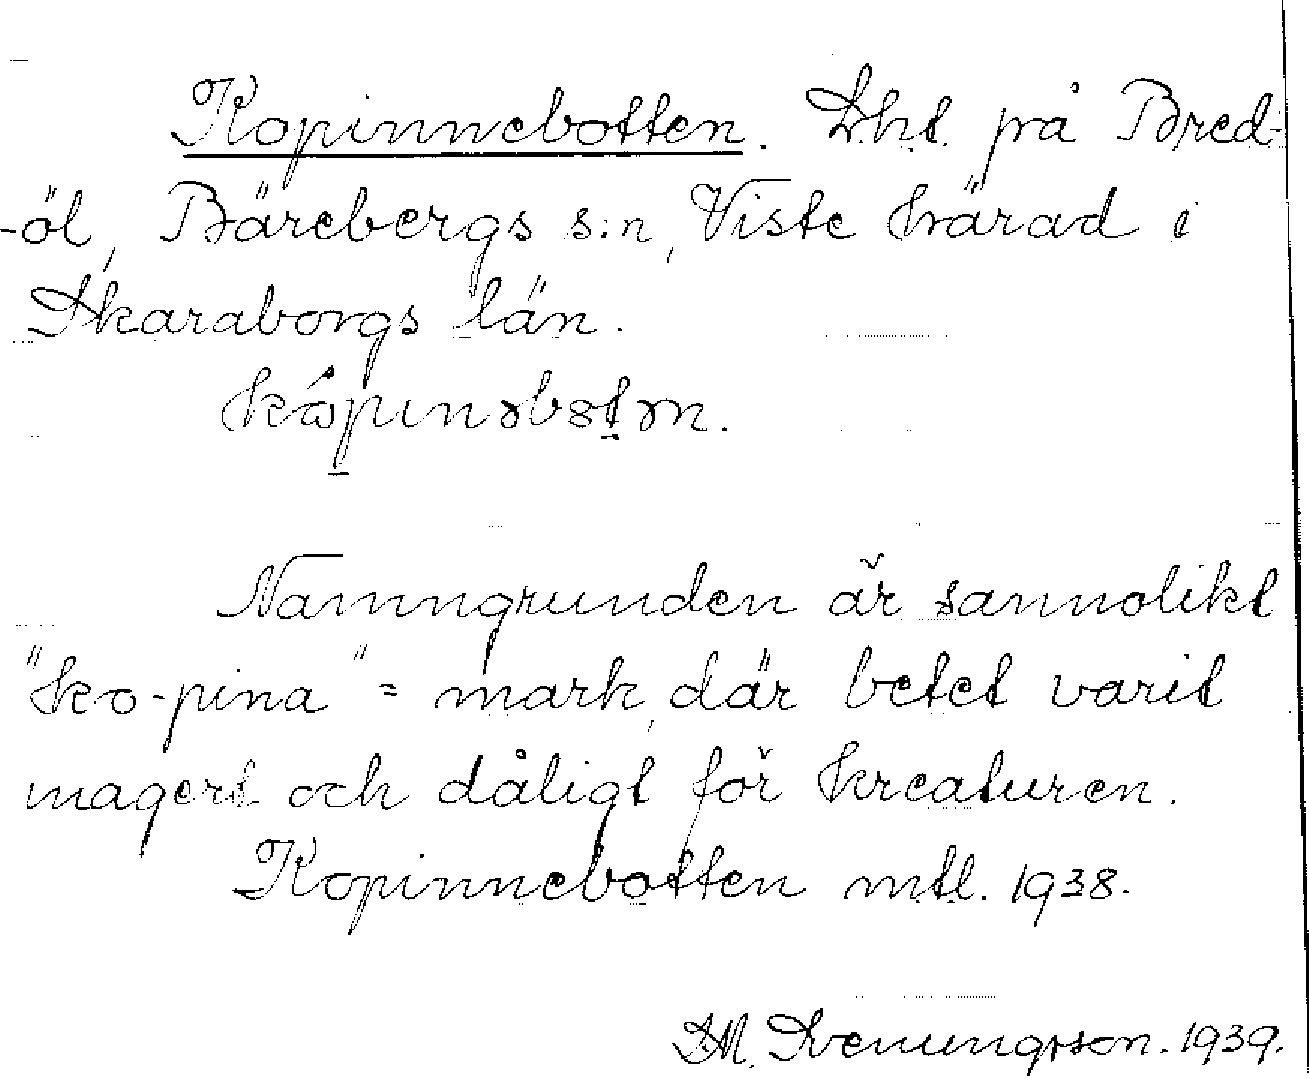 Kopinnebotten. Lht. på Bred-
-öl, Bärebergs s:n, Viste härad i
Skaraborgs län.
Namngrunden är sannolikt
"ko-pina" = mark, där betet varit
magert och dåligt för kreaturen.
Kopinnebotten mtl. 1938.
Svenungsson. 1939.